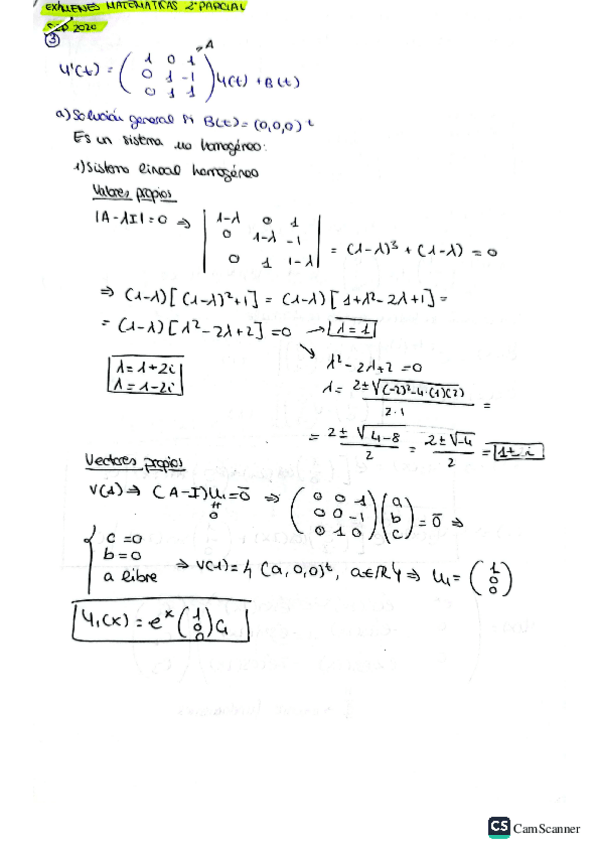 EXÁMENES MATEMÁTICAS 2º PARCIAL
SEP 2020
③
Y'(t) = ( 1 0 1 / 0 1 -1 / 0 1 1 ) Y(t) + B(t)
→ A
a) Solución general si B(t) = (0,0,0)^t
Es un sistema no homogéneo:
1) Sistema lineal homogéneo
Valores propios
|A-λI|=0 ⇒ | 1-λ 0 1 / 0 1-λ -1 / 0 1 1-λ | = (1-λ)³ + (1-λ) = 0
⇒ (1-λ)[(1-λ)²+1] = (1-λ)[1+λ²-2λ+1] =
= (1-λ)[λ²-2λ+2] = 0 → λ=1
λ²-2λ+2=0
λ=1+2i
λ=1-2i
λ = 2±√(-2)²-4·(1)(2) / 2·1 =
= 2±√4-8 / 2 = 2±√-4 / 2 = 1±i
Vectores propios
V(1) ⇒ (A-I)u₁=0̄ ⇒ ( 0 0 1 / 0 0 -1 / 0 1 0 ) ( a / b / c ) = 0̄ ⇒
≠
0
{ c=0
b=0
a libre
⇒ V(1) = { (a,0,0)^t, a∈ℝ } ⇒ u₁ = ( 1 / 0 / 0 )
Y₁(x) = e^x ( 1 / 0 / 0 ) C₁
CS CamScanner